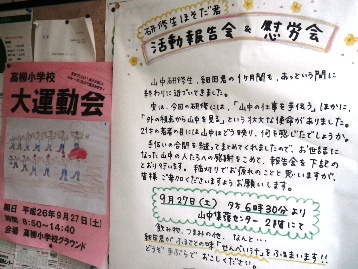 高柳小学校
大運動会
期日 平成26年9月27日(土)
時間 8:50~14:40
会場 高柳小学校グラウンド
研修生ほそだ君
活動報告会 & 慰労会
山中研修生、細田君の1ヶ月間も、あっという間に
終わりに近づいてきました。
実は、今回の研修には、「山中の仕事を手伝う」ほかに、
「外の視点から山中を見る」という壮大な使命がありました。
21才の若者の目には山中はどう映り、何を感じたでしょうか。
手伝いの合間を縫ってまとめてくれましたので、お世話に
なった山中の人たちへの感謝をこめて、報告会を下記の
とおり行います。稲刈りでお疲れのことと思いますが、
皆様ご参加くださいますようお願いします。
9月27日(土) 夕方6時30分より
山中集落センター2階にて
飲み物、つまみの他、なんと…